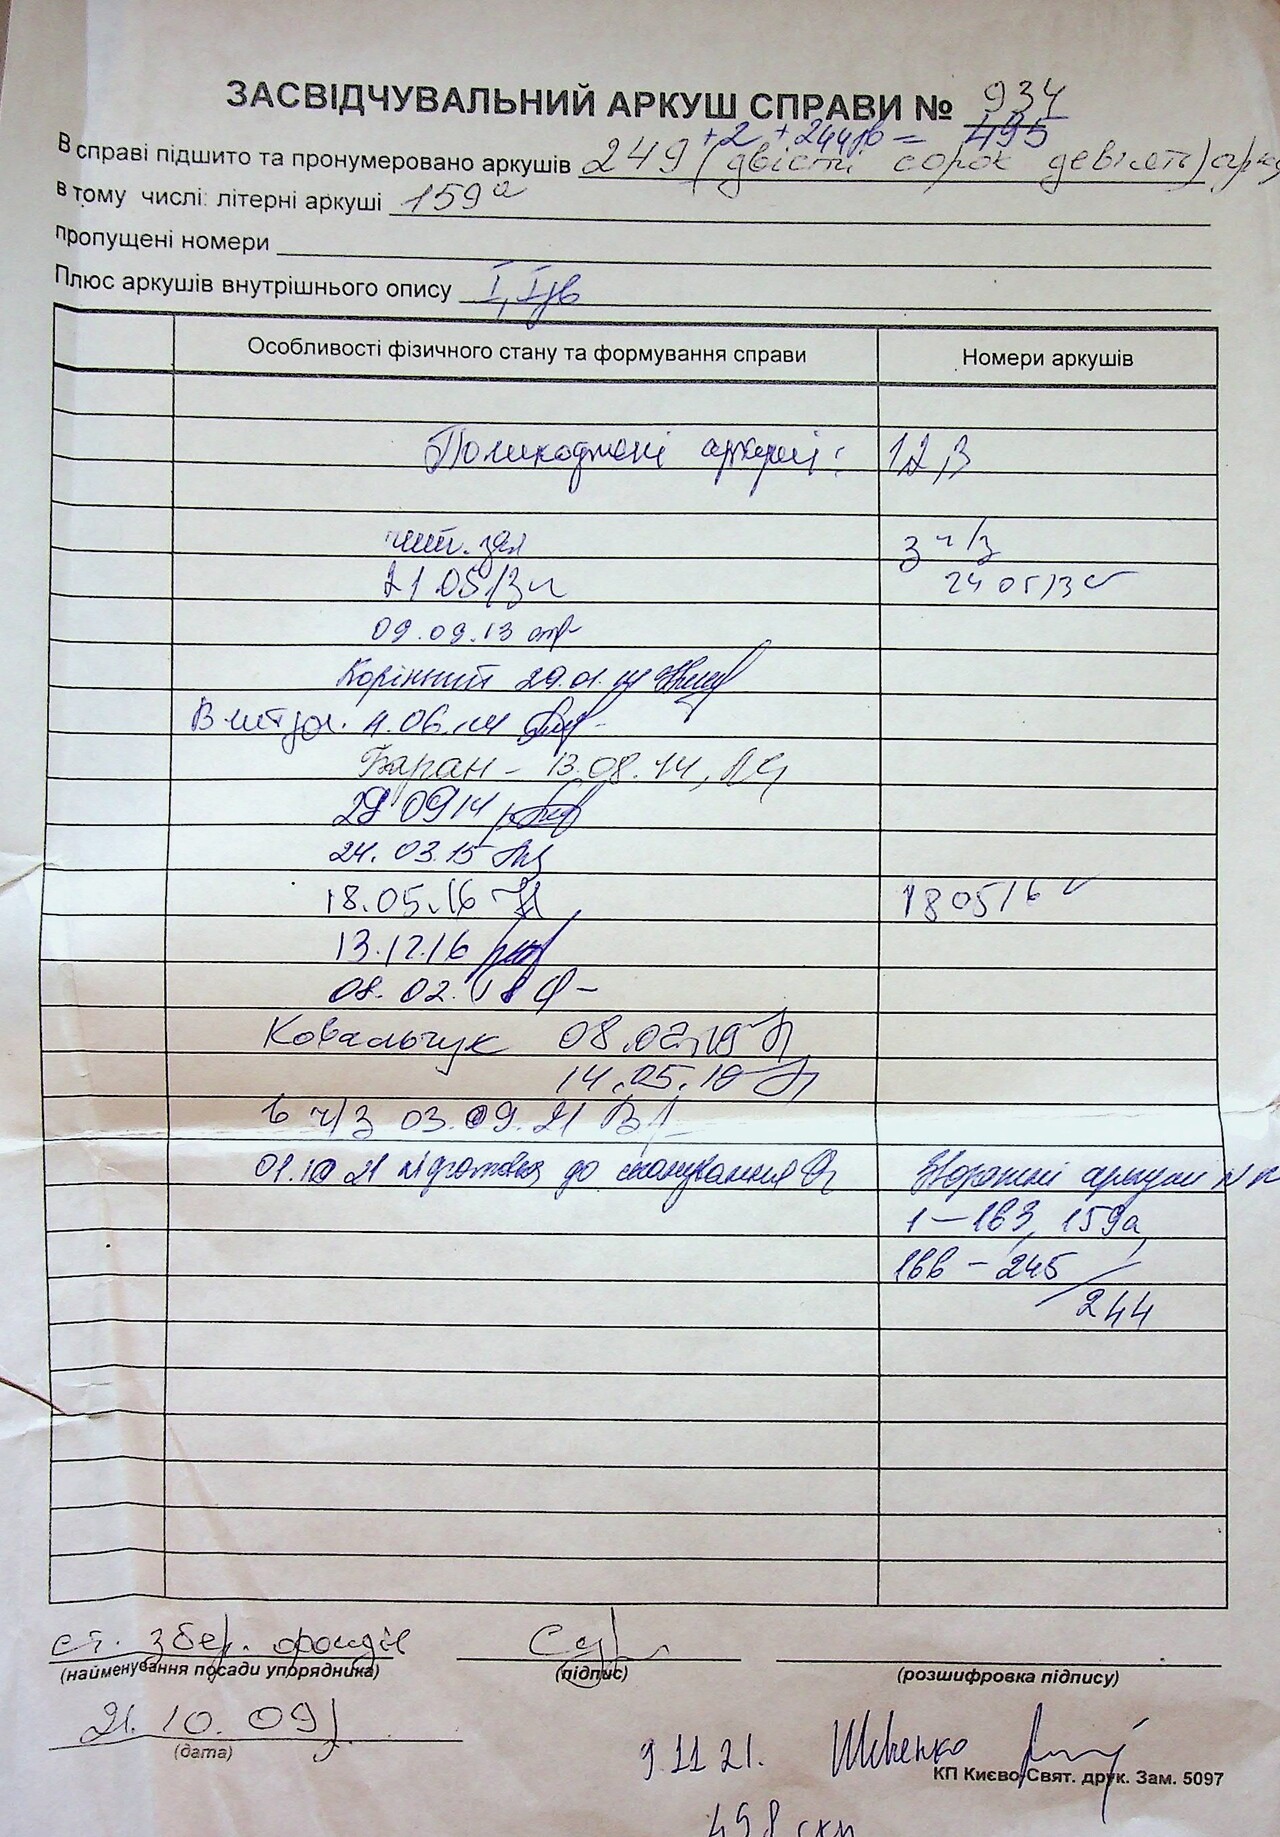 ЗАСВІДЧУВАЛЬНИЙ АРКУШ СПРАВИ № 934
+2 +244зв = 495
В справі підшито та пронумеровано аркушів 249 (двісті сорок девять) арку
в тому числі: літерні аркуші 159а
пропущені номери
Плюс аркушів внутрішнього опису I, Iзв
Особливості фізичного стану та формування справи Номери аркушів
Пошкоджені аркуші: 1,2,3
чит. зал 3 ч/з
21.05/13 24 05/13
09.09.13
Корінний 29.01.14
В чит зал. 4.06.14
Баран - 13.08.14,
29 09 14
24.03.15
18.05.16 18 05 16
13.12.16
08.02.18
Ковальчук 08.02.19
14.05.19
в ч/з 03.09.21
01.10 21 підготовка до сканування Зворотні аркуші №№
1-163, 159а,
166-245
244
ст. збер. фондів
(найменування посади упорядника) (підпис) (розшифровка підпису)
21.10.09
(дата)
9.11.21. Шевченко
КП Києво-Свят. друк. Зам. 5097
498 скан